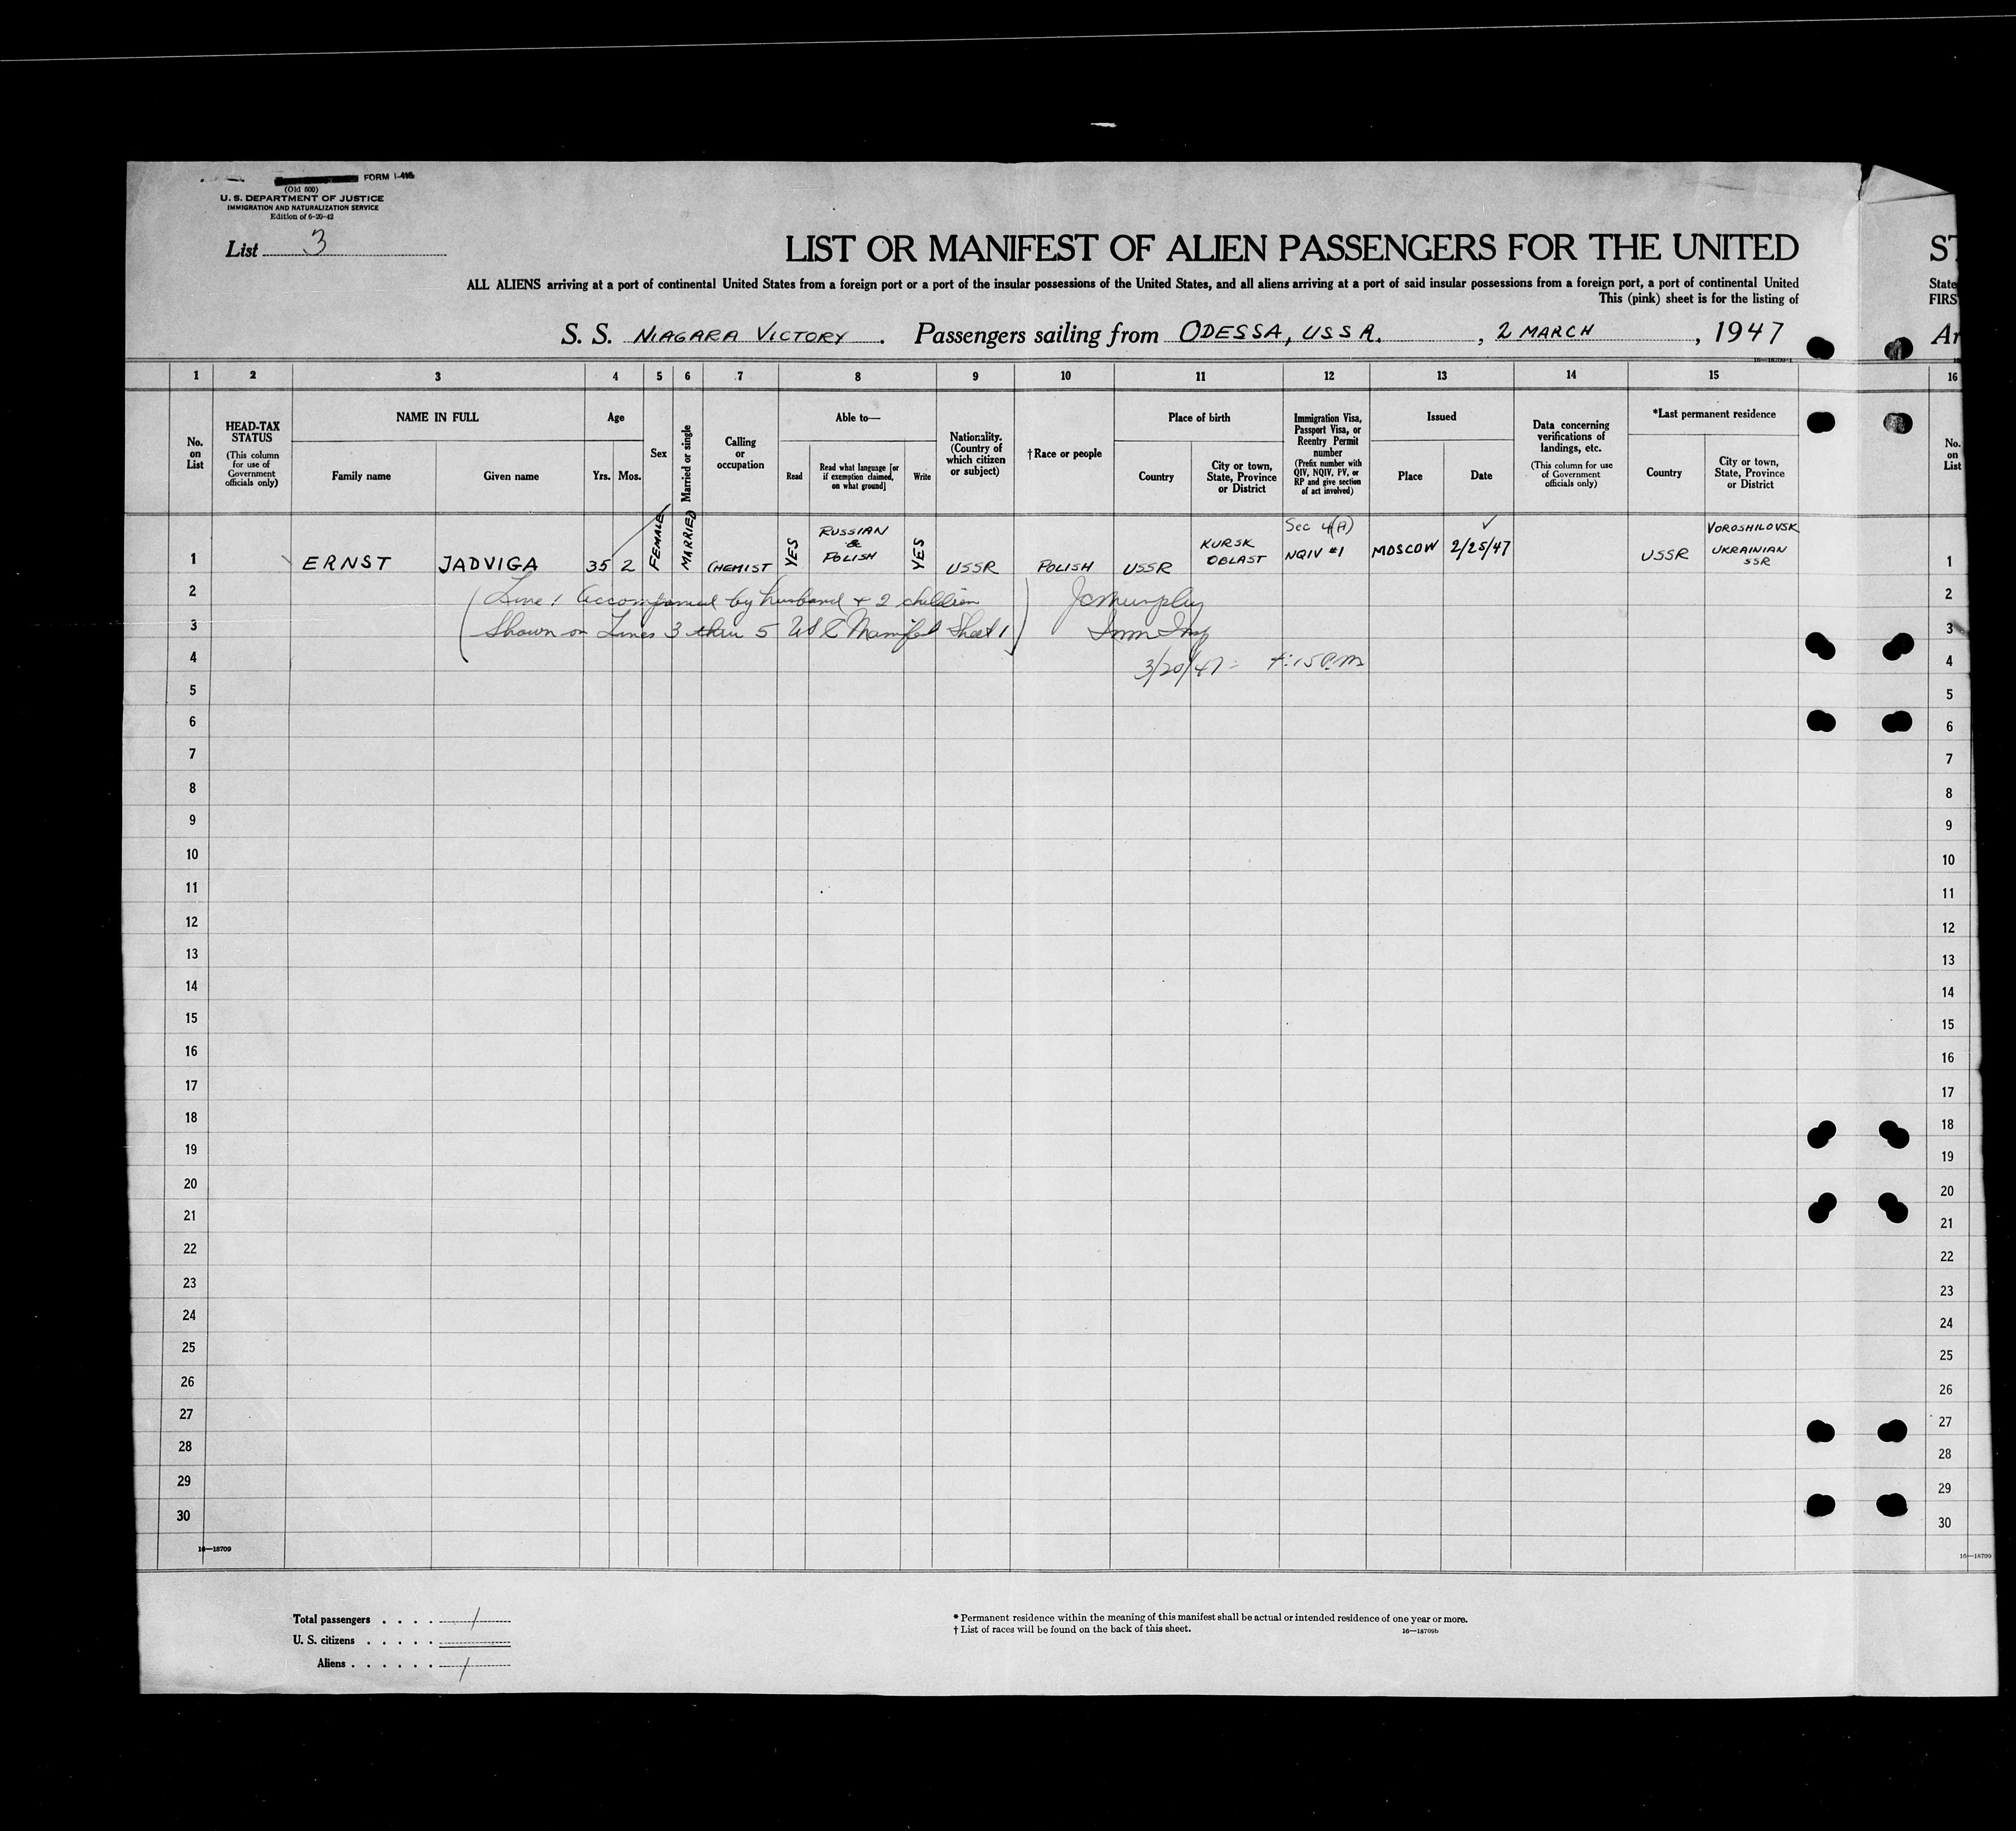 FORM I-415
(Old 500)
U. S. DEPARTMENT OF JUSTICE
IMMIGRATION AND NATURALIZATION SERVICE
Edition of 6-20-42
List 3
LIST OR MANIFEST OF ALIEN PASSENGERS FOR THE UNITED
ST
ALL ALIENS arriving at a port of continental United States from a foreign port or a port of the insular possessions of the United States, and all aliens arriving at a port of said insular possessions from a foreign port, a port of continental United
State
This (pink) sheet is for the listing of
FIRS
S. S. NIAGARA VICTORY. Passengers sailing from ODESSA, USSR., 2 MARCH, 1947
Ar
16—18709-1
1 2 3 4 5 6 7 8 9 10 11 12 13 14 15 16
No. on List
HEAD-TAX STATUS
(This column for use of Government officials only)
NAME IN FULL
Family name
Given name
Age
Yrs. Mos.
Sex
Married or single
Calling or occupation
Able to—
Read
Read what language [or if exemption claimed, on what ground]
Write
Nationality. (Country of which citizen or subject)
†Race or people
Place of birth
Country
City or town, State, Province or District
Immigration Visa, Passport Visa, or Reentry Permit number
(Prefix number with QIV, NQIV, PV, or RP and give section of act involved)
Issued
Place
Date
Data concerning verifications of landings, etc.
(This column for use of Government officials only)
*Last permanent residence
Country
City or town, State, Province or District
No. on List
1 ERNST JADVIGA 35 2 FEMALE MARRIED CHEMIST YES RUSSIAN & POLISH YES USSR POLISH USSR KURSK OBLAST Sec 4(A) NQIV #1 MOSCOW 2/25/47 USSR VOROSHILOVSK UKRAINIAN SSR 1
2 (Line 1 Accompanied by husband + 2 children JCMurphy 2
3 Shown on Lines 3 thru 5 USC Manifest Sheet 1) Imm Insp 3
4 3/20/47 - 4:15 P.M. 4
5 5
6 6
7 7
8 8
9 9
10 10
11 11
12 12
13 13
14 14
15 15
16 16
17 17
18 18
19 19
20 20
21 21
22 22
23 23
24 24
25 25
26 26
27 27
28 28
29 29
30 30
16—18709
16—18709
Total passengers . . . . 1
U. S. citizens . . . . .
Aliens . . . . . . 1
* Permanent residence within the meaning of this manifest shall be actual or intended residence of one year or more.
† List of races will be found on the back of this sheet.
16—18709b